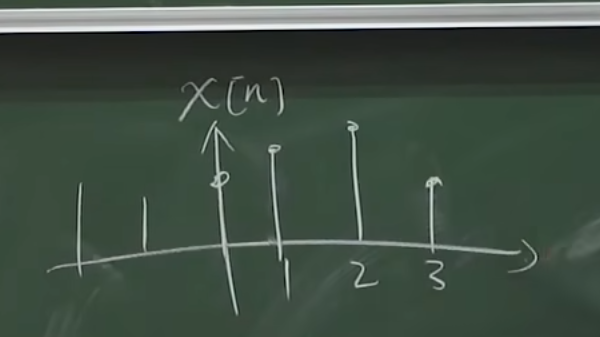 x[n]
1 2 3